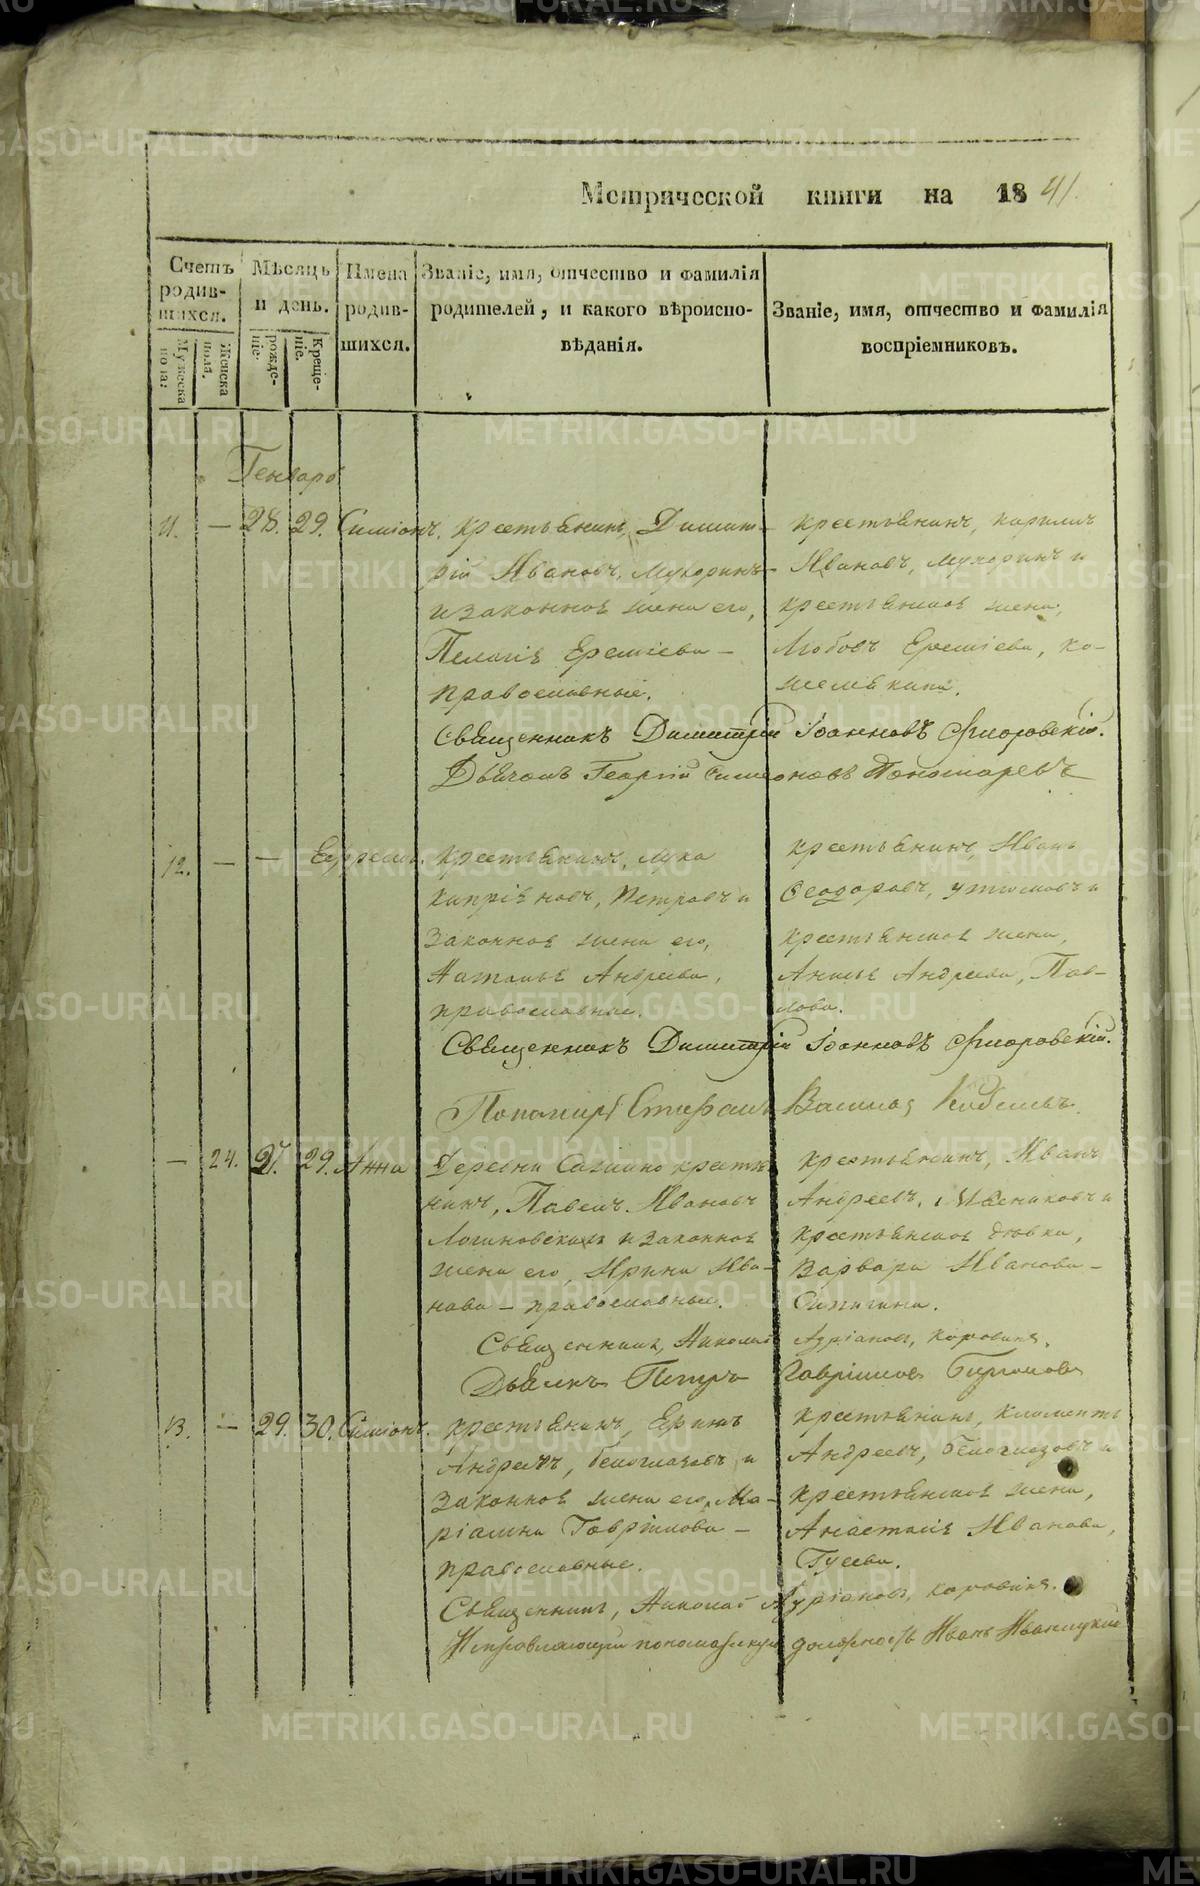 Метрической книги на 1841.
Счетъ родив-шихся.
Мѣсяцъ и день.
Имена родив-шихся.
Званіе, имя, отчество и фамилія родителей, и какого вѣроиспо-вѣданія.
Званіе, имя, отчество и фамилія воспріемниковъ.
Мужеска пола.
Женска пола.
рожде-ніе.
Креще-ніе.
Генварь
11. — 28. 29. Симіонъ.
крестьянинъ, Димит-
рій Ивановъ, Мухоринъ
и законная жена его,
Пелагія Еремѣева —
православные.
крестьянинъ, Кирилъ
Ивановъ, Мухоринъ и
крестьянская жена,
Любовь Еремѣева, Ко-
жемякина.
Священникъ Димитрій Іоанновъ Флоровскій.
Дьячокъ Георгій Симеоновъ Пономаревъ
12. — — Ефремъ.
крестьянинъ, Лука
Кипріяновъ, Петровъ и
законная жена его,
Наталья Андреева,
православные.
крестьянинъ, Иванъ
Ѳеодоровъ, Утюмовъ и
крестьянская жена,
Анисья Андреева, Пав-
лова.
Священникъ Димитрій Іоанновъ Флоровскій.
Пономарь Стефанъ
— 24. 27. 29. Анна
Деревни крестья-
нинъ, Павелъ Ивановъ
Логиновскихъ и законная
жена его, Ирина Ива-
нова — православные.
крестьянинъ, Иванъ
Андреевъ, Мясниковъ и
крестьянская дѣвка,
Варвара Иванова —
Сипягина.
Священникъ, Николай Адріановъ, Коровинъ.
Дьячокъ Петръ Гавріиловъ
13. — 29. 30. Симіонъ.
крестьянинъ, Ермилъ
Андреевъ, Белоглазовъ и
законная жена его, Ма-
ріамна Гавріилова —
православные.
крестьянинъ, Климентъ
Андреевъ, Белоглазовъ и
крестьянская жена,
Анастасія Иванова,
Гусева.
Священникъ, Николай Адріановъ, Коровинъ.
Исправляющій пономарскую должность Иванъ Иваницкій
METRIKI.GASO-URAL.RU